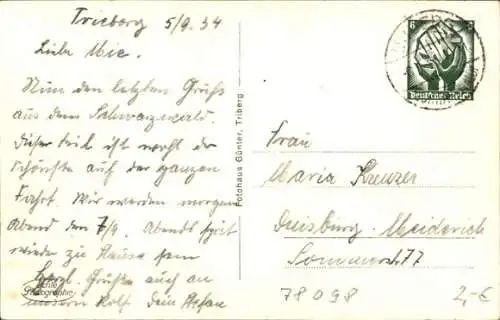 Triberg 5/9.34
Liebe Mie.
Nun den letzten Gruß
aus dem Schwarzwald.
Dieser teil ist wohl der
schönste auf der ganzen
Fahrt. Wir werden morgen
Abend den 7/9. Abends spät
wieder zu Hause sein
Herzl. Grüße auch an
unseren Rolf. Dein Stefan
Echte Photographie
Fotohaus Günter, Triberg
6 6
Deutsches Reich
Frau
Maria Kreuzer
Duisburg-Meiderich
Sommerstr. 77
78098
2,-€